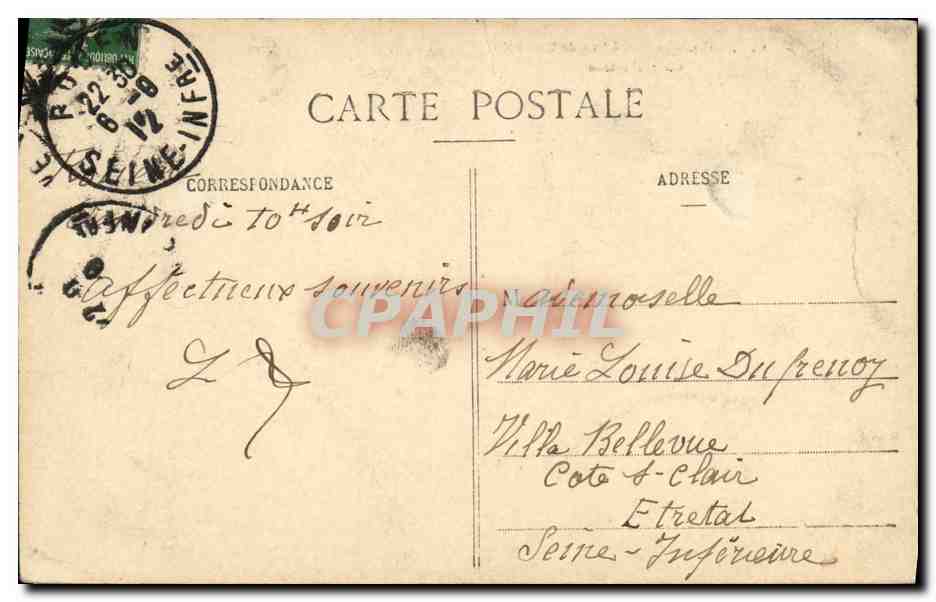 CARTE POSTALE
CORRESPONDANCE
ADRESSE
SEINE-INFRE
22
6 12
Vendredi 10H soir
affectueux souvenirs
CPAPHIL
Mademoiselle
Marie Louise Dufrenoy
Villa Bellevue
Cote S-Clair
Etretat
Seine-Inférieure